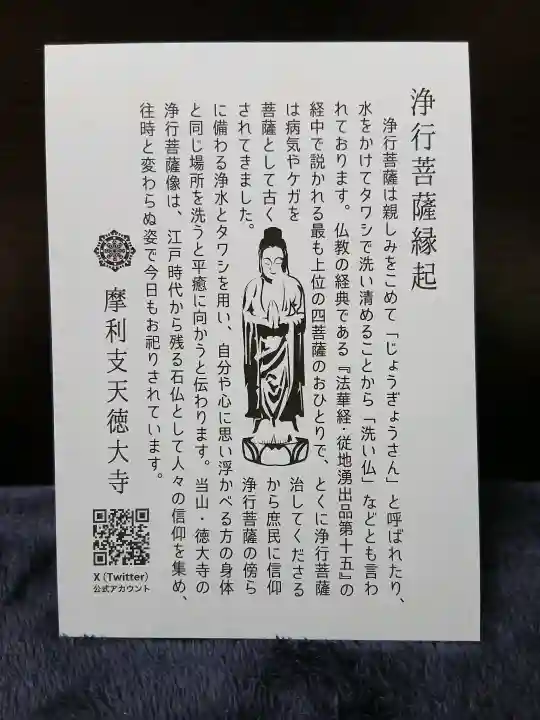 浄行菩薩縁起
浄行菩薩は親しみをこめて「じょうぎょうさん」と呼ばれたり、
水をかけてタワシで洗い清めることから「洗い仏」などとも言わ
れております。仏教の経典である『法華経・従地湧出品第十五』の
経中で説かれる最も上位の四菩薩のおひとりで、とくに浄行菩薩
は病気やケガを治してくださる
菩薩として古くから庶民に信仰
されてきました。浄行菩薩の傍ら
に備わる浄水とタワシを用い、自分や心に思い浮かべる方の身体
と同じ場所を洗うと平癒に向かうと伝わります。当山・徳大寺の
浄行菩薩像は、江戸時代から残る石仏として人々の信仰を集め、
往時と変わらぬ姿で今日もお祀りされています。
摩利支天徳大寺
X (Twitter)
公式アカウント